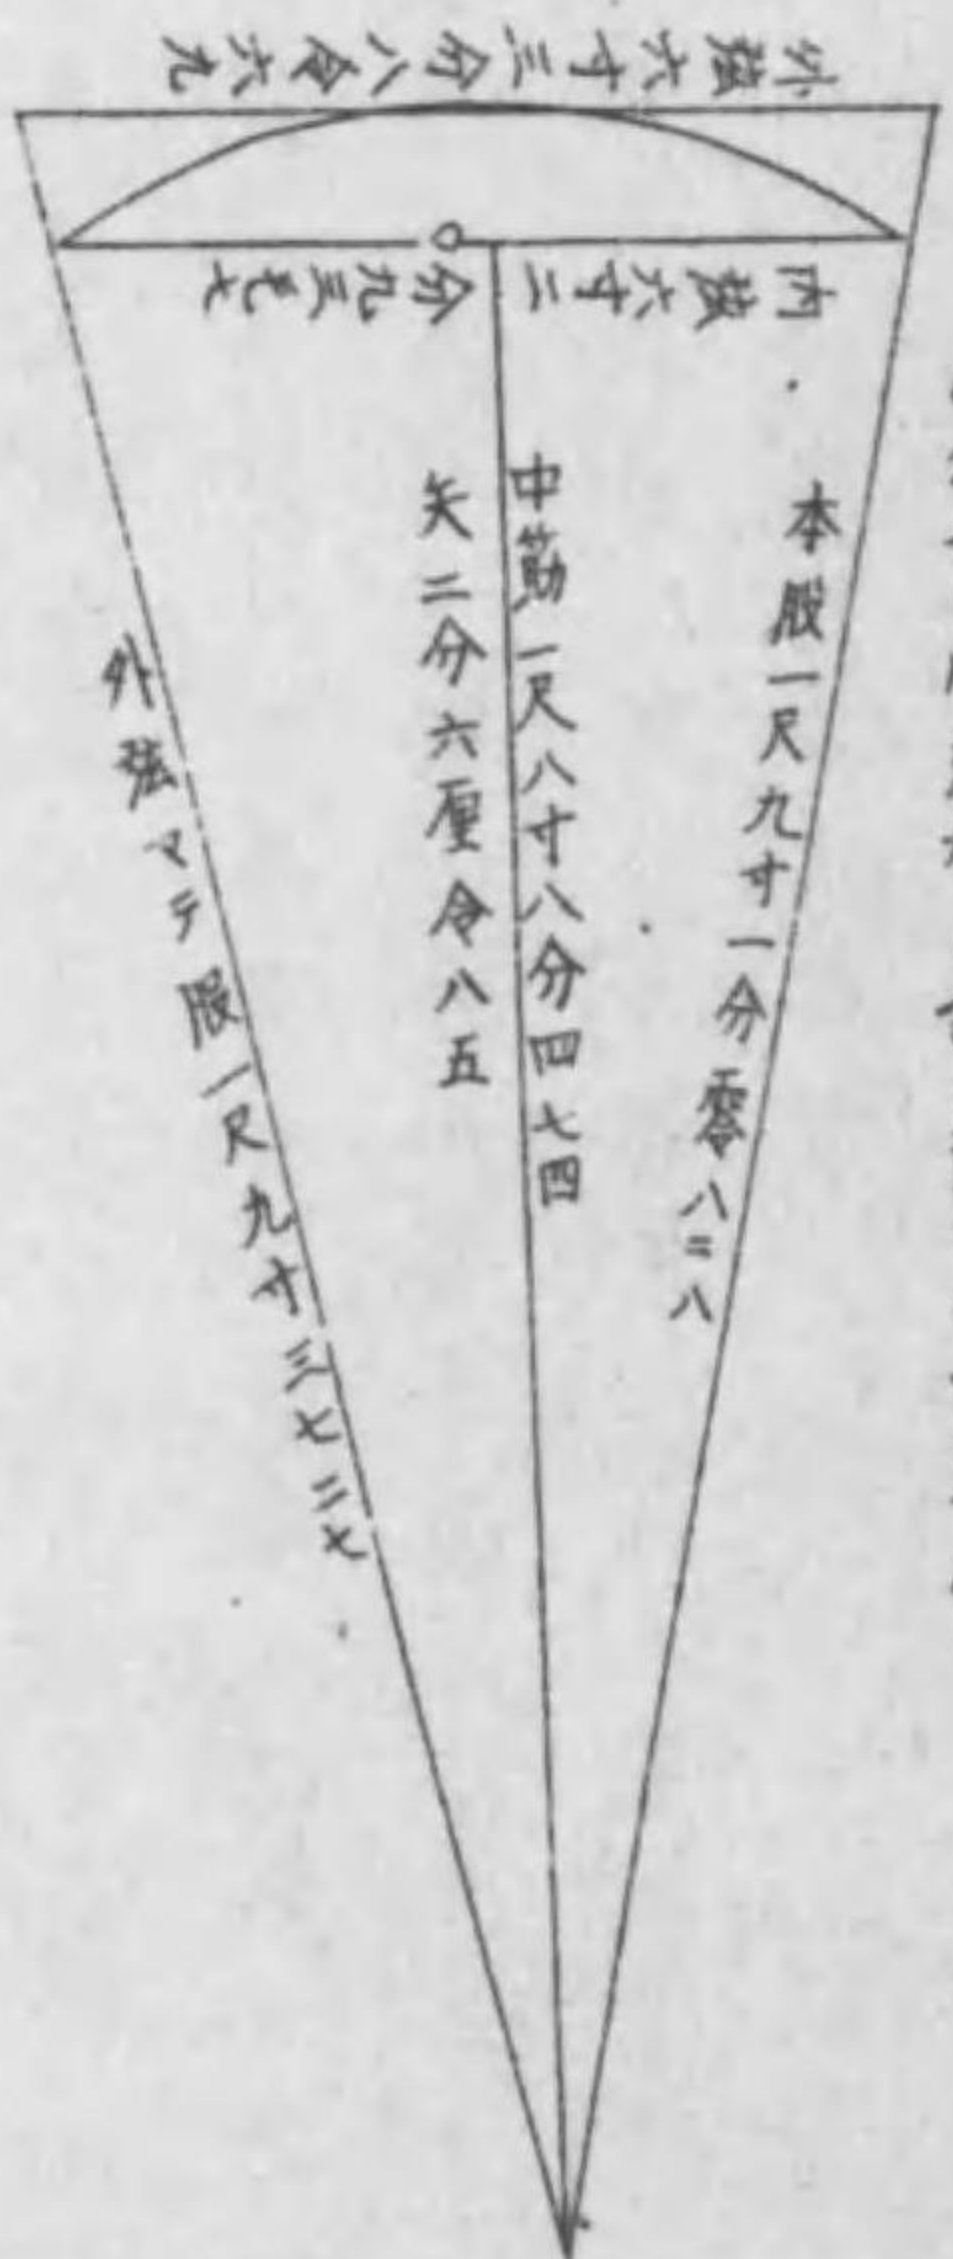 外弦六寸三分八令六九
内弦六寸二分九三毛七
本股一尺九寸一分零八二八
中筋一尺八寸八分四七四
矢二分六厘令八五
外弦マテ股一尺九寸三七二七